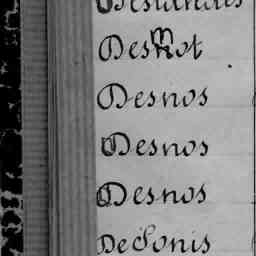 Desnot
Desnos
Desnos
Desnos
DeSonis